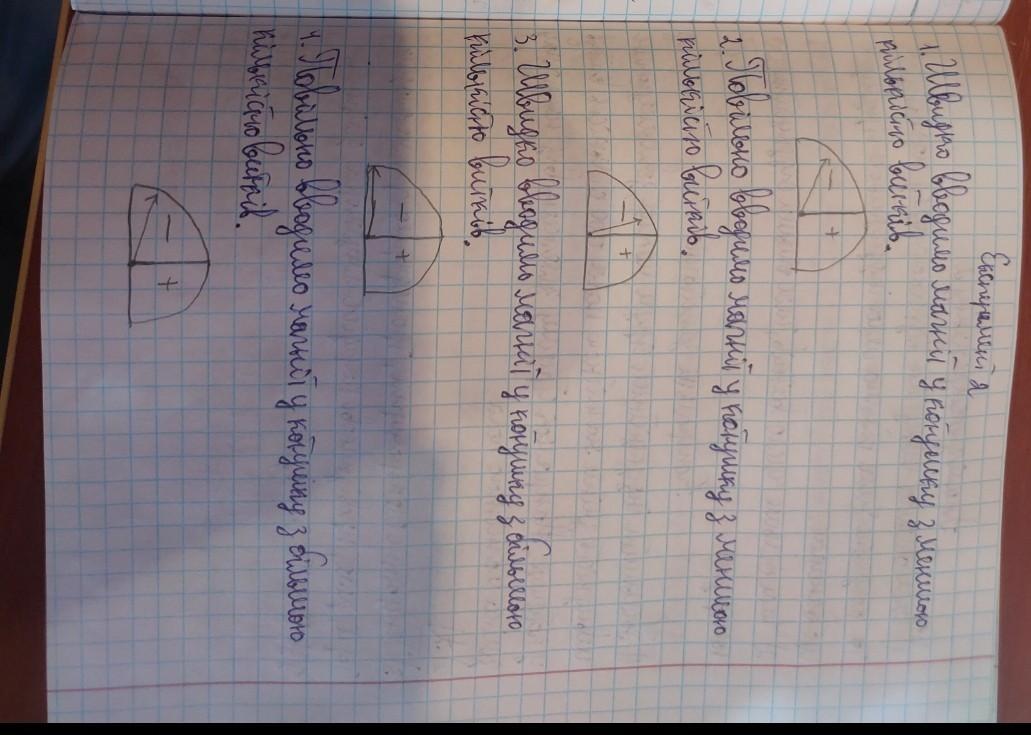 Експремент 2
1. Швидко вводимо магніт у котушку з меншою
кількістю витків.
- +
2. Повільно вводимо магніт у котушку з меншою
кількістю витків.
- +
3. Швидко вводимо магніт у котушку з більшою
кількістю витків.
- +
4. Повільно вводимо магніт у котушку з більшою
кількістю витків.
- +